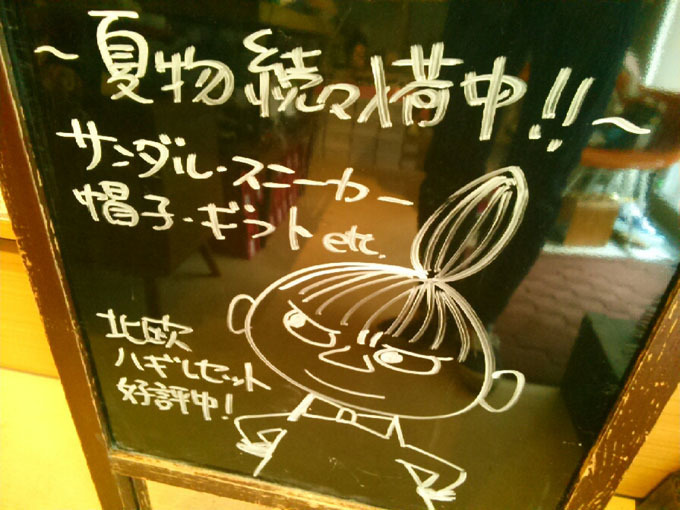 ～夏物続々搭中!!～
サンダル・スニーカー
帽子・ギフト etc.
北欧
ハギレセット
好評中!